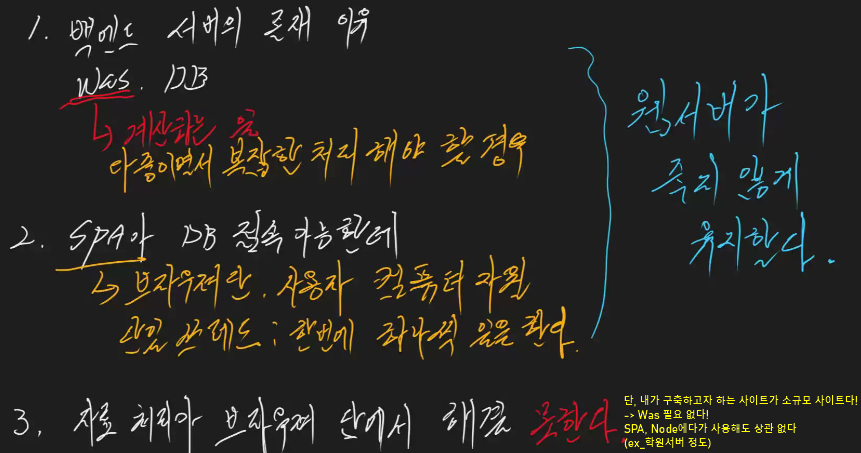 1. 백엔드 서버의 존재 이유
Was. DB
↳ 계산하는 일
다중이면서 복잡한 처리 해야 할 경우
2. SPA가 DB 접속 가능한데
↳ 브라우저단. 사용자 컴퓨터 자원
단일 쓰레드 : 한번에 하나씩 일을 한다.
3. 자료 처리가 브라우저 단에서 해결 못한다.
웹서버가
죽지 않게
유지한다.
단, 내가 구축하고자 하는 사이트가 소규모 사이트다!
-> Was 필요 없다!
SPA, Node에다가 사용해도 상관 없다
(ex_학원서버 정도)